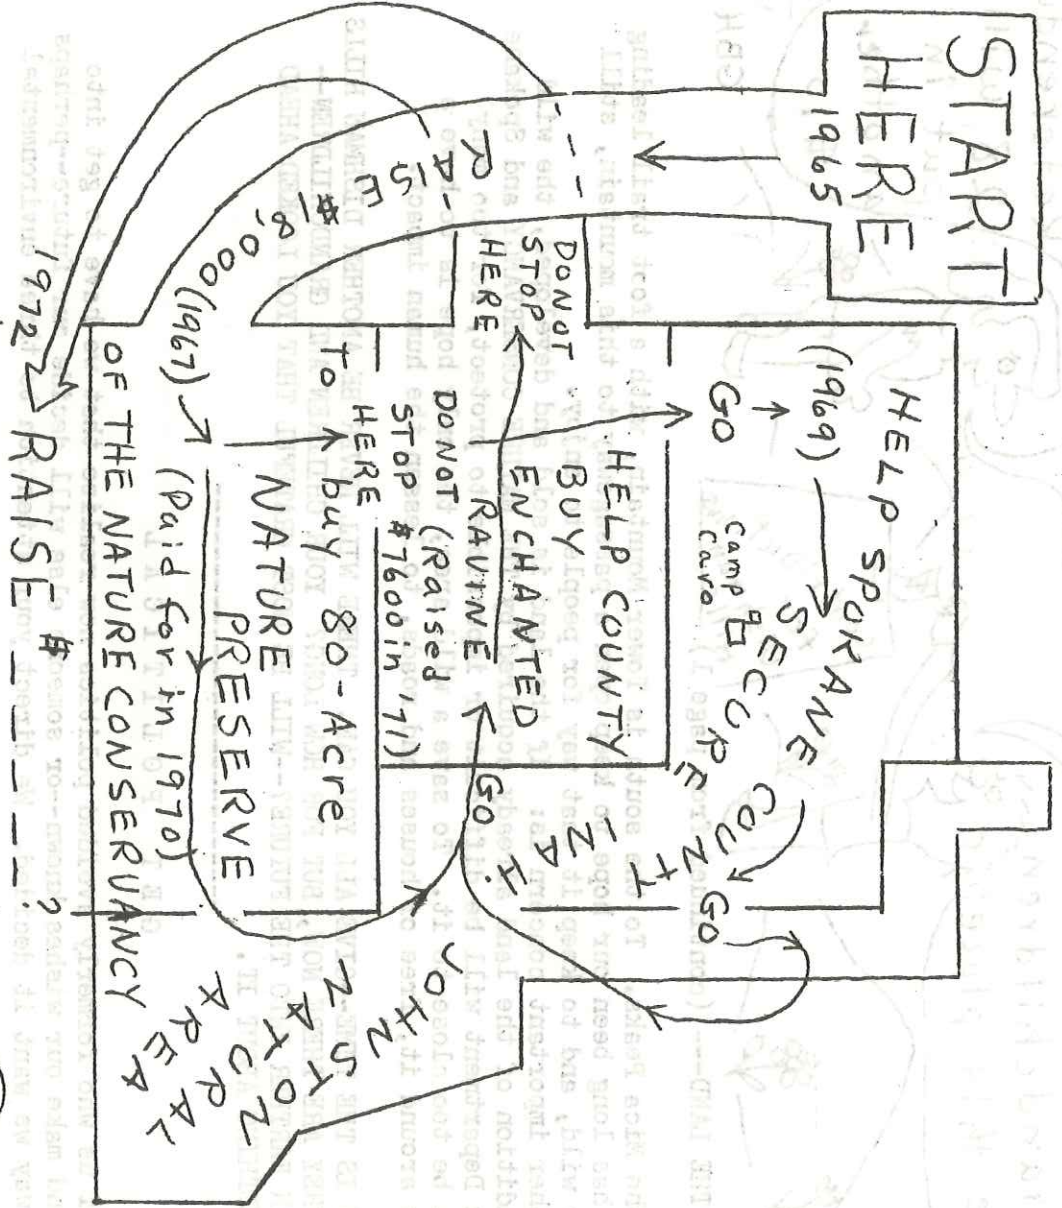 START
HERE
1965
RAISE $18,000 (1967)
To buy 80-Acre
NATURE
PRESERVE
(Paid for in 1970)
OF THE NATURE CONSERVANCY
DO NOT
STOP
HERE
(Raised
$7600 in '71)
HELP COUNTY
BUY
ENCHANTED
RAVINE
DO NOT
STOP
HERE
GO
HELP SPOKANE COUNTY
(1969)
SECURE
INAH.
GO
Camp
Caro
GO
JOHNSTON
NATURAL
AREA
1972 RAISE $ _ _ _ _ _ _ ?